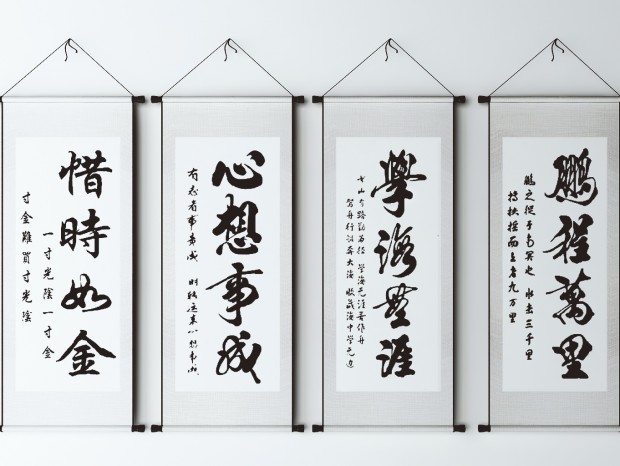 鵬程萬里
鵬之徙于南冥也 水击三千里
搏扶摇而上者九万里
學海無涯
书山有路勤为径 学海无涯苦作舟
心想事成
有志者事竟成
惜時如金
一寸光陰一寸金
寸金難買寸光陰